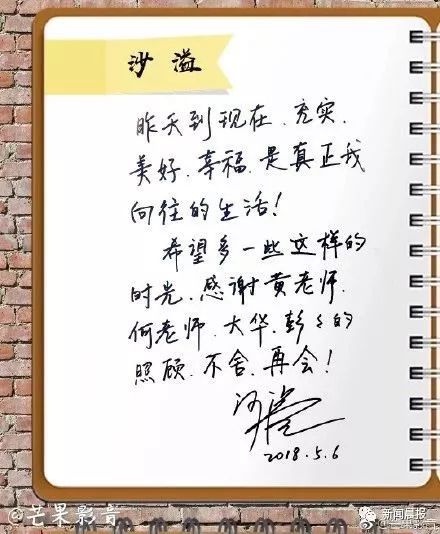 沙溢
昨天到现在、充实、
美好、幸福、是真正我
向往的生活!
希望多一些这样的
时光、感谢黄老师、
何老师、大华、彭彭的
照顾、不舍、再会!
沙溢
2018.5.6
@芒果影音
新闻晨报
@芒果影音